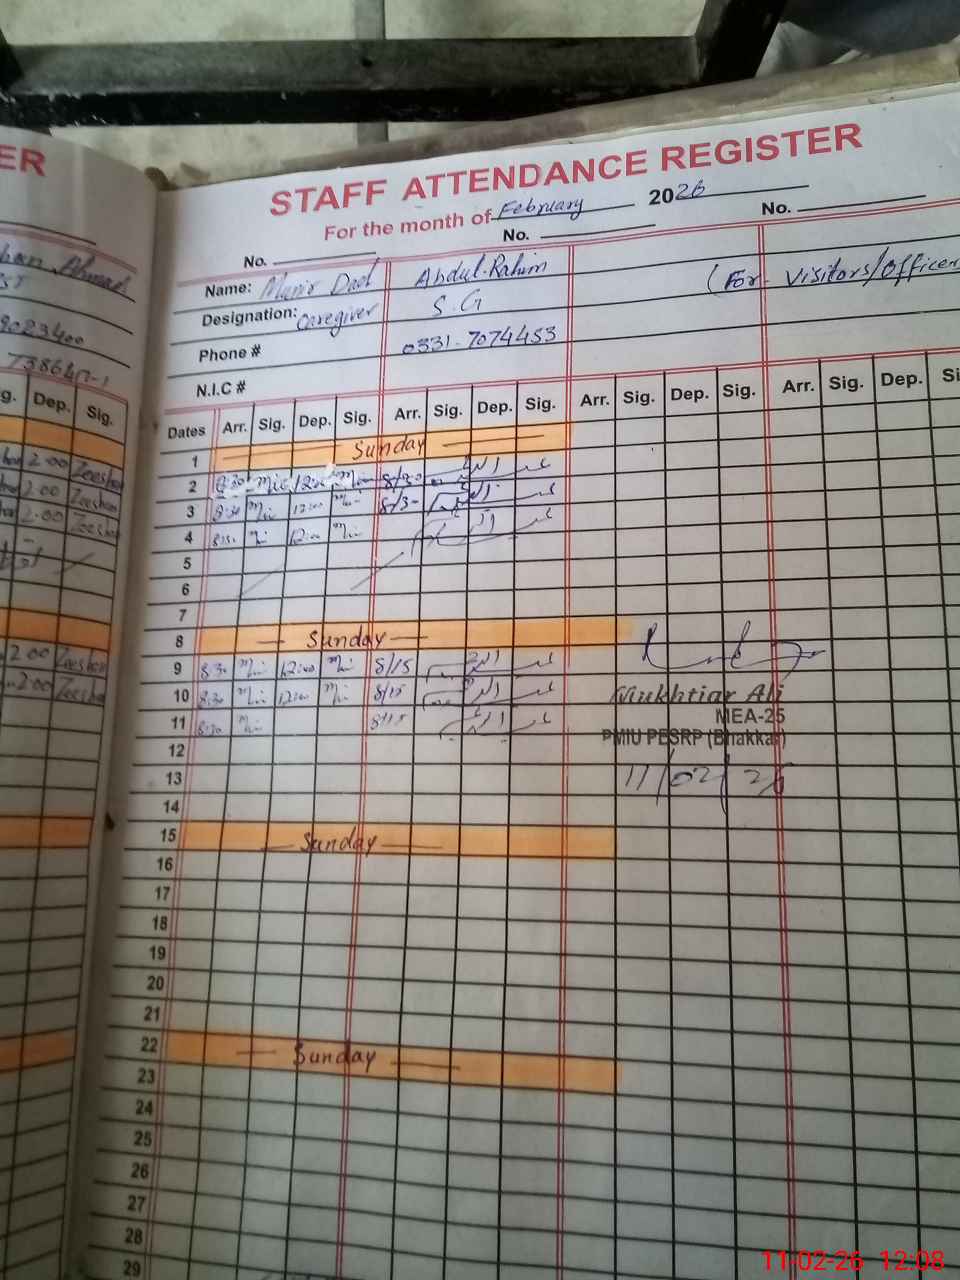 ER
STAFF ATTENDANCE REGISTER
For the month of February 2026
No. No. No.
Name: Munir Dad Abdul Rahim (For Visitors/Officer
Designation: Caregiver S.G
Phone # 0331-7074453
N.I.C #
9023400
g. Dep. Sig.
2:00 Zeeshan
2:00 Zeeshan
2:00 Zeeshan
2:00 Zeeshan
2:00 Zeeshan
Dates Arr. Sig. Dep. Sig. Arr. Sig. Dep. Sig. Arr. Sig. Dep. Sig. Arr. Sig. Dep. Si
1 Sunday
2 8:30 12:00 8/30
3 8:30 12:00 8/30
4 8:30 12:00
5
6
7
8 Sunday
9 8:30 12:00 8/15
10 8:30 12:00 8/15
11 8:30 8/15
Mukhtiar Ali
MEA-25
PMIU PESRP (Bhakkar)
11/02/26
12
13
14
15 Sunday
16
17
18
19
20
21
22 Sunday
23
24
25
26
27
28
29
11-02-26 12:08